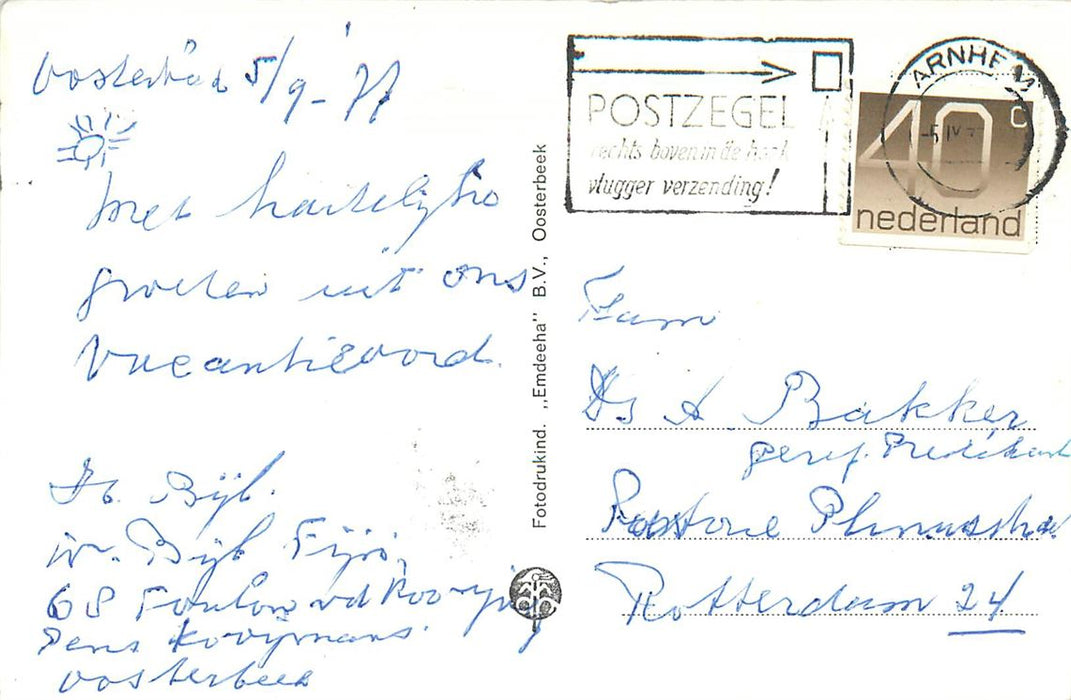 Oosterbeek 5/9-77
Met hartelijke
groeten uit ons
vacantieoord.
Bijl.
Bijl
68
Pens Kooijmans.
Oosterbeek
Fotodrukind. „Emdeeha" B.V., Oosterbeek
POSTZEGEL
rechts boven in de hoek
vlugger verzending!
ARNHEM
40 c
nederland
Fam
Ds A. Bakker
geref. Predikant
Pastorie
Rotterdam 24